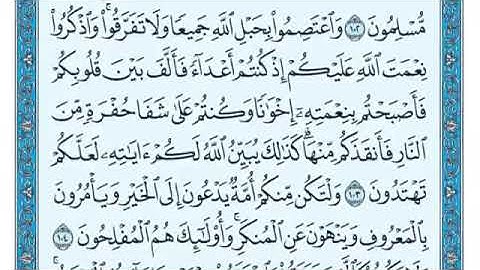 مُّسْلِمُونَ ١٠٢ وَٱعْتَصِمُوا۟ بِحَبْلِ ٱللَّهِ جَمِيعًا وَلَا تَفَرَّقُوا۟ ۚ وَٱذْكُرُوا۟
نِعْمَتَ ٱللَّهِ عَلَيْكُمْ إِذْ كُنتُمْ أَعْدَآءً فَأَلَّفَ بَيْنَ قُلُوبِكُمْ
فَأَصْبَحْتُم بِنِعْمَتِهِۦٓ إِخْوَٰنًا وَكُنتُمْ عَلَىٰ شَفَا حُفْرَةٍ مِّنَ
ٱلنَّارِ فَأَنقَذَكُم مِّنْهَا ۗ كَذَٰلِكَ يُبَيِّنُ ٱللَّهُ لَكُمْ ءَايَٰتِهِۦ لَعَلَّكُمْ
تَهْتَدُونَ ١٠٣ وَلْتَكُن مِّنكُمْ أُمَّةٌ يَدْعُونَ إِلَى ٱلْخَيْرِ وَيَأْمُرُونَ
بِٱلْمَعْرُوفِ وَيَنْهَوْنَ عَنِ ٱلْمُنكَرِ ۚ وَأُو۟لَٰٓئِكَ هُمُ ٱلْمُفْلِحُونَ ١٠٤